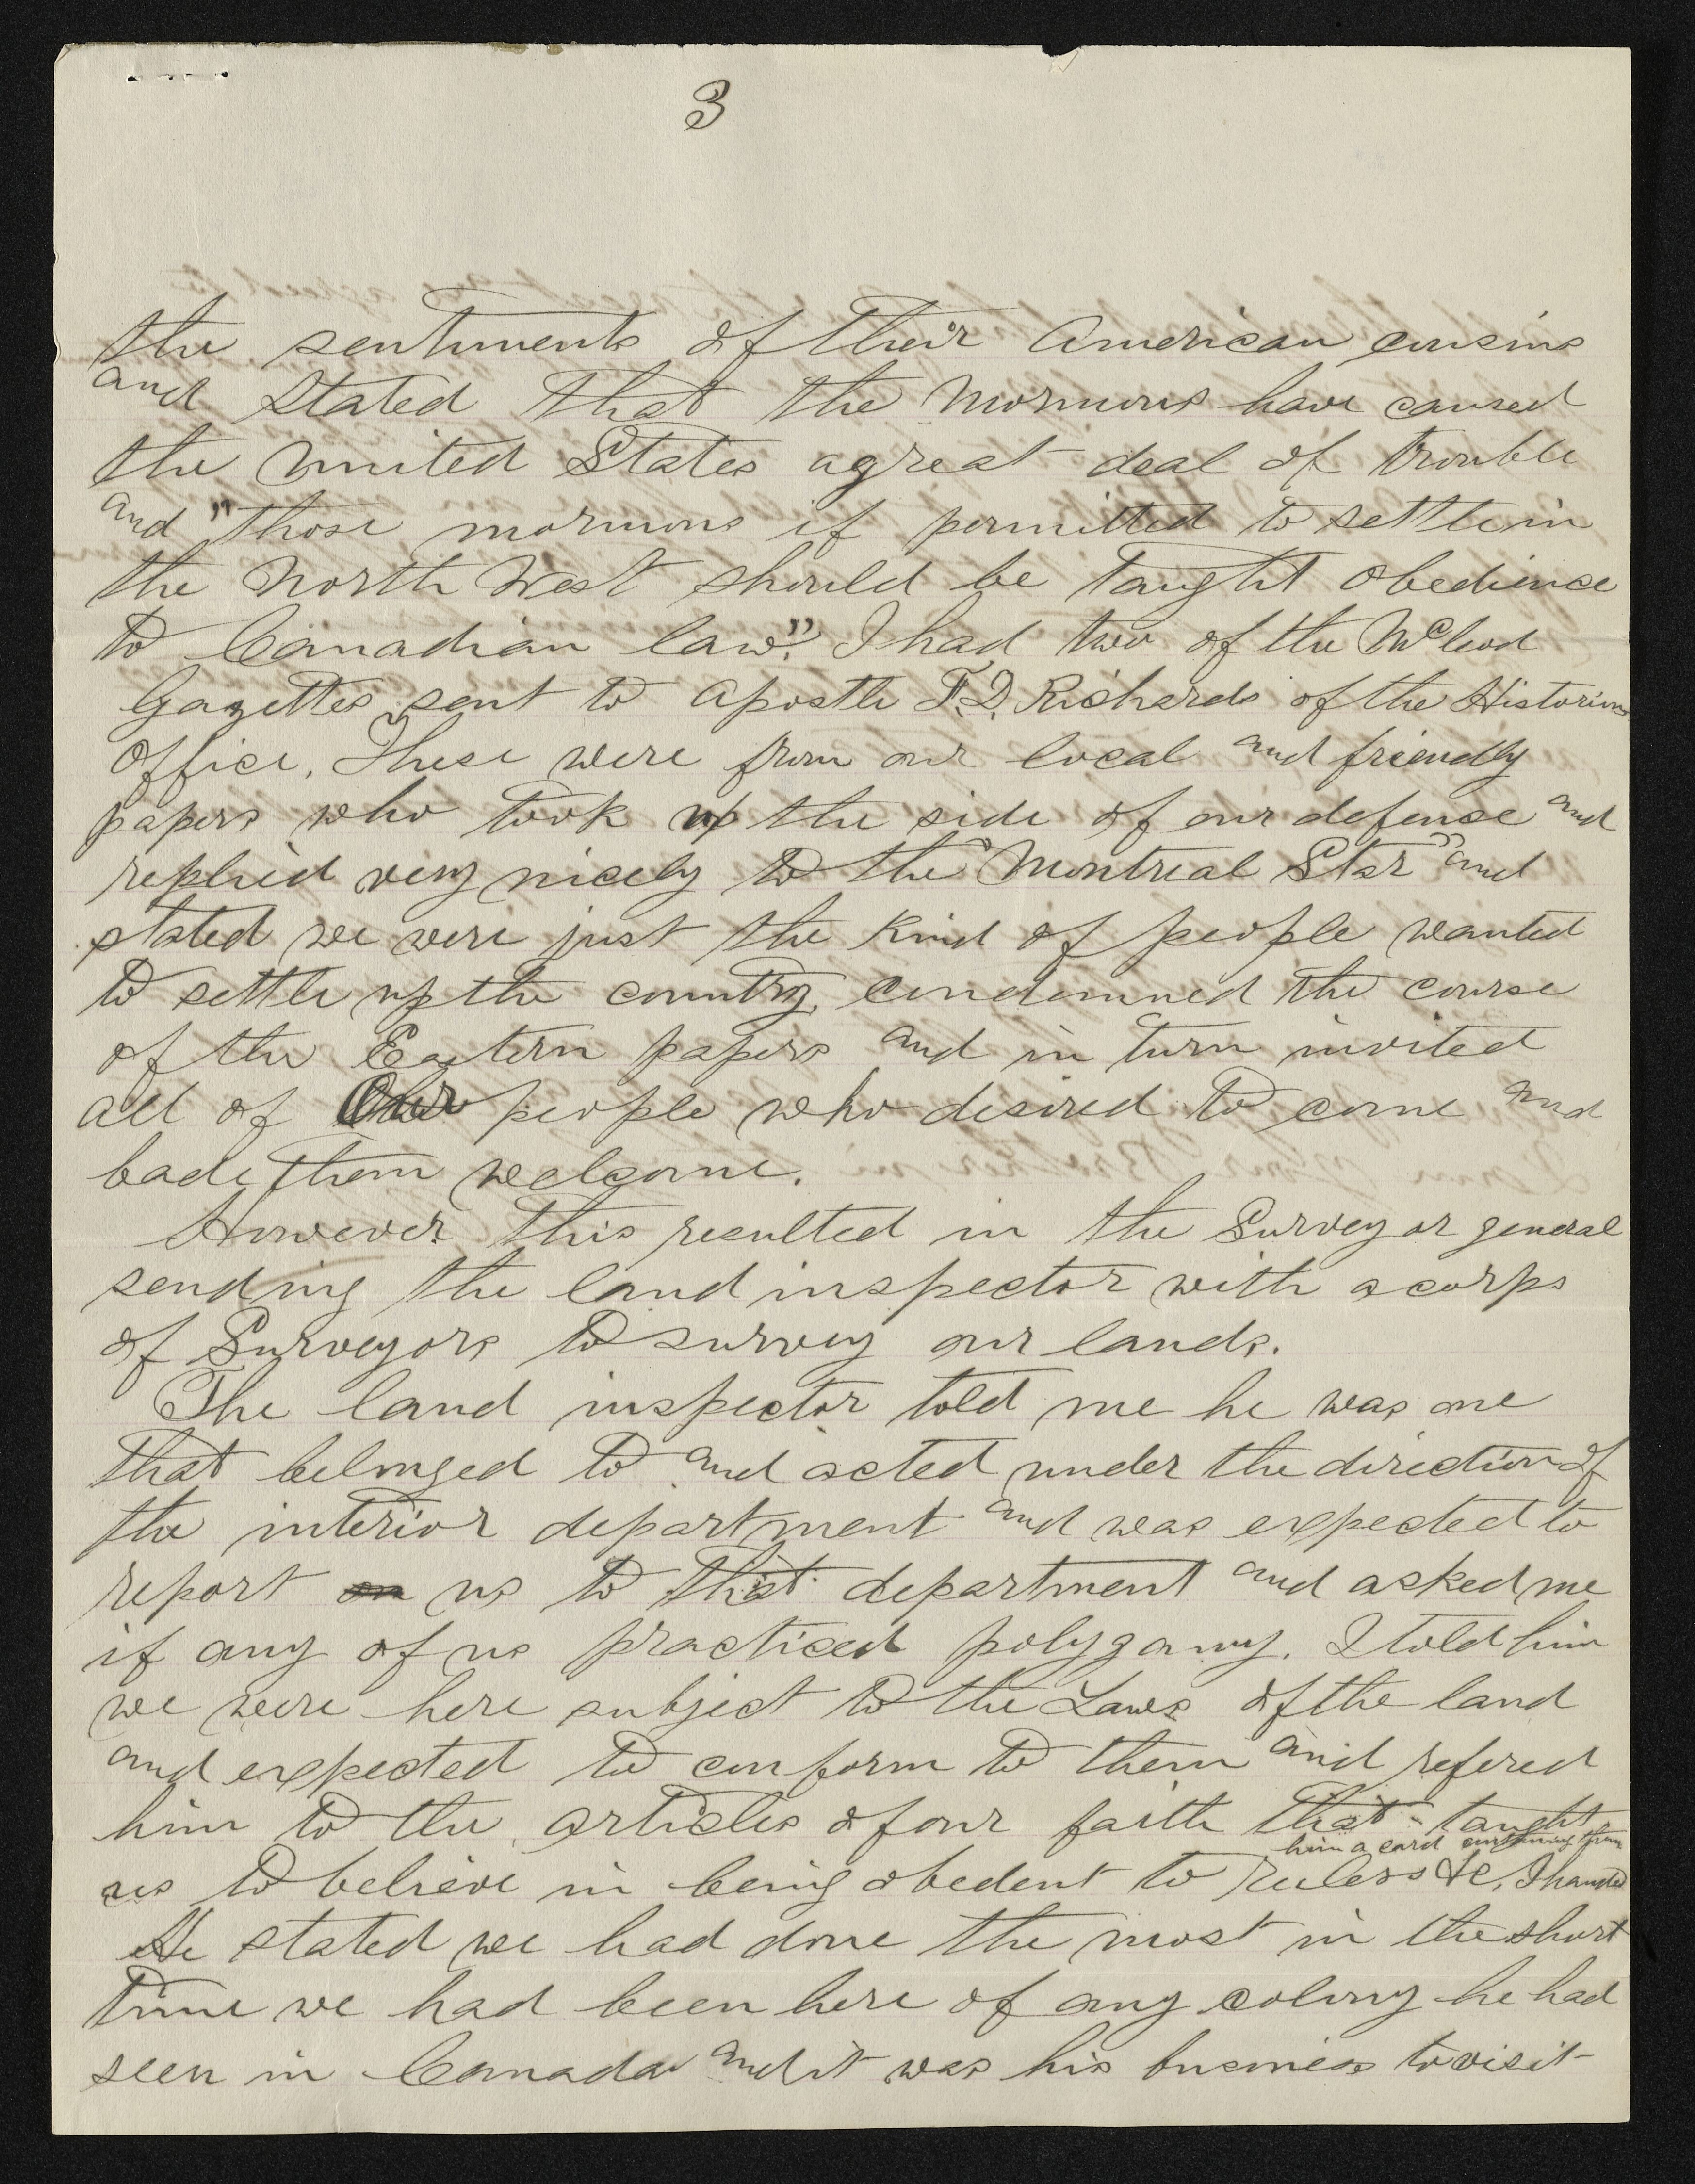 3
the sentiments of their American cousins
and stated that the Mormons have caused
the United States agreat deal of trouble
and "those mormons if permitted to settle in
the North West should be taught obedience
to Canadian law". I had two of the McLeod
Gazettes sent to Apostle F.D. Richards of the Historians
Office. These were from our local and friendly
papers who took up the side of our defense and
replied very nicely to the "Montreal Star" and
stated we were just the kind of people wanted
to settle up the country, condemned the course
of the Eastern papers and in turn invited
all of Our people who desired to come and
bade them welcome.
However this resulted in the Surveyor general
sending the land inspector with a corps
of Surveyors to survey our lands.
The land inspector told me he was one
that belonged to and acted under the direction of
the interior department and was expected to
report on us to that department and asked me
if any of us practiced polygamy. I told him
we were here subject to the Laws of the land
and expected to conform to them and refered
him to the articles of our faith that taught
him a card containing them
us to believe in being obedent to rulers &c, I handed
He stated we had done the most in the short
time we had been here of any colony he had
seen in Canada and it was his business to visit